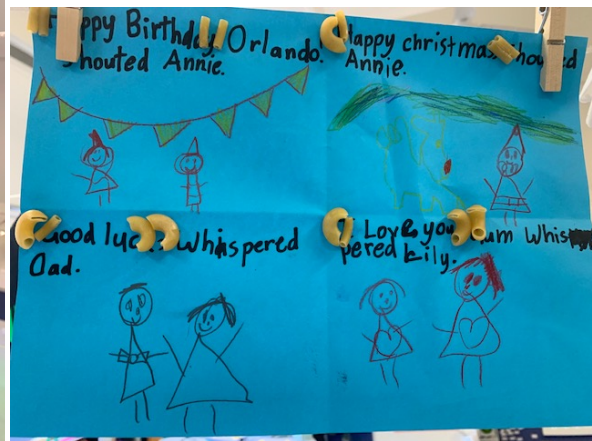 Happy Birthday Orlando.
shouted Annie.
Happy christmas shouted
Annie.
Good luck whispered
Dad.
I Love you Mum Whis
pered Lily.